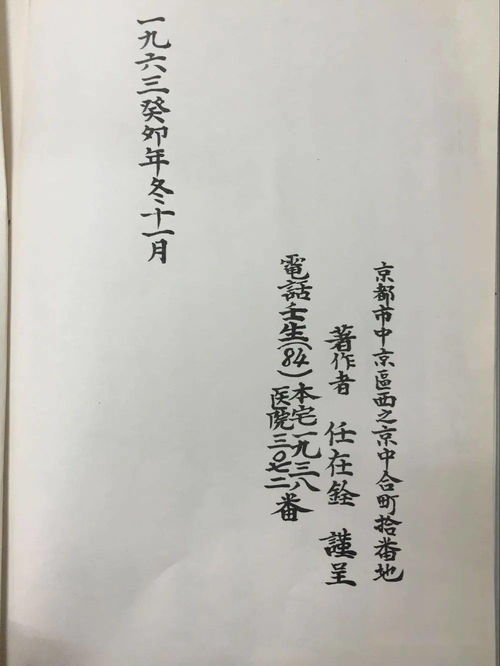 京都市中京區西之京中合町拾番地
著作者 任在銓 謹呈
電話壬生(84)本宅一九三八
医院三〇七二番
一九六三癸卯年冬十一月